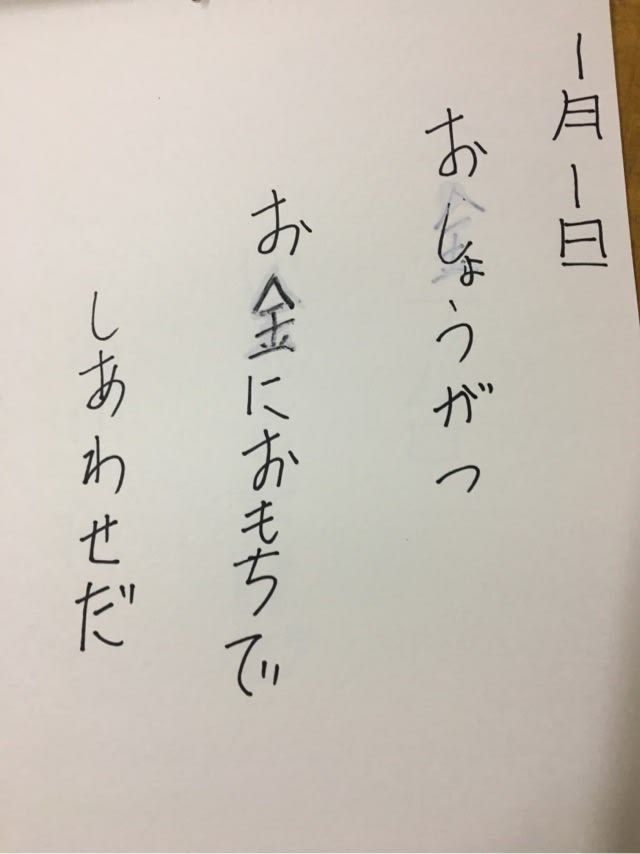 一月一日
おしょうがつ
お金におもちで
しあわせだ